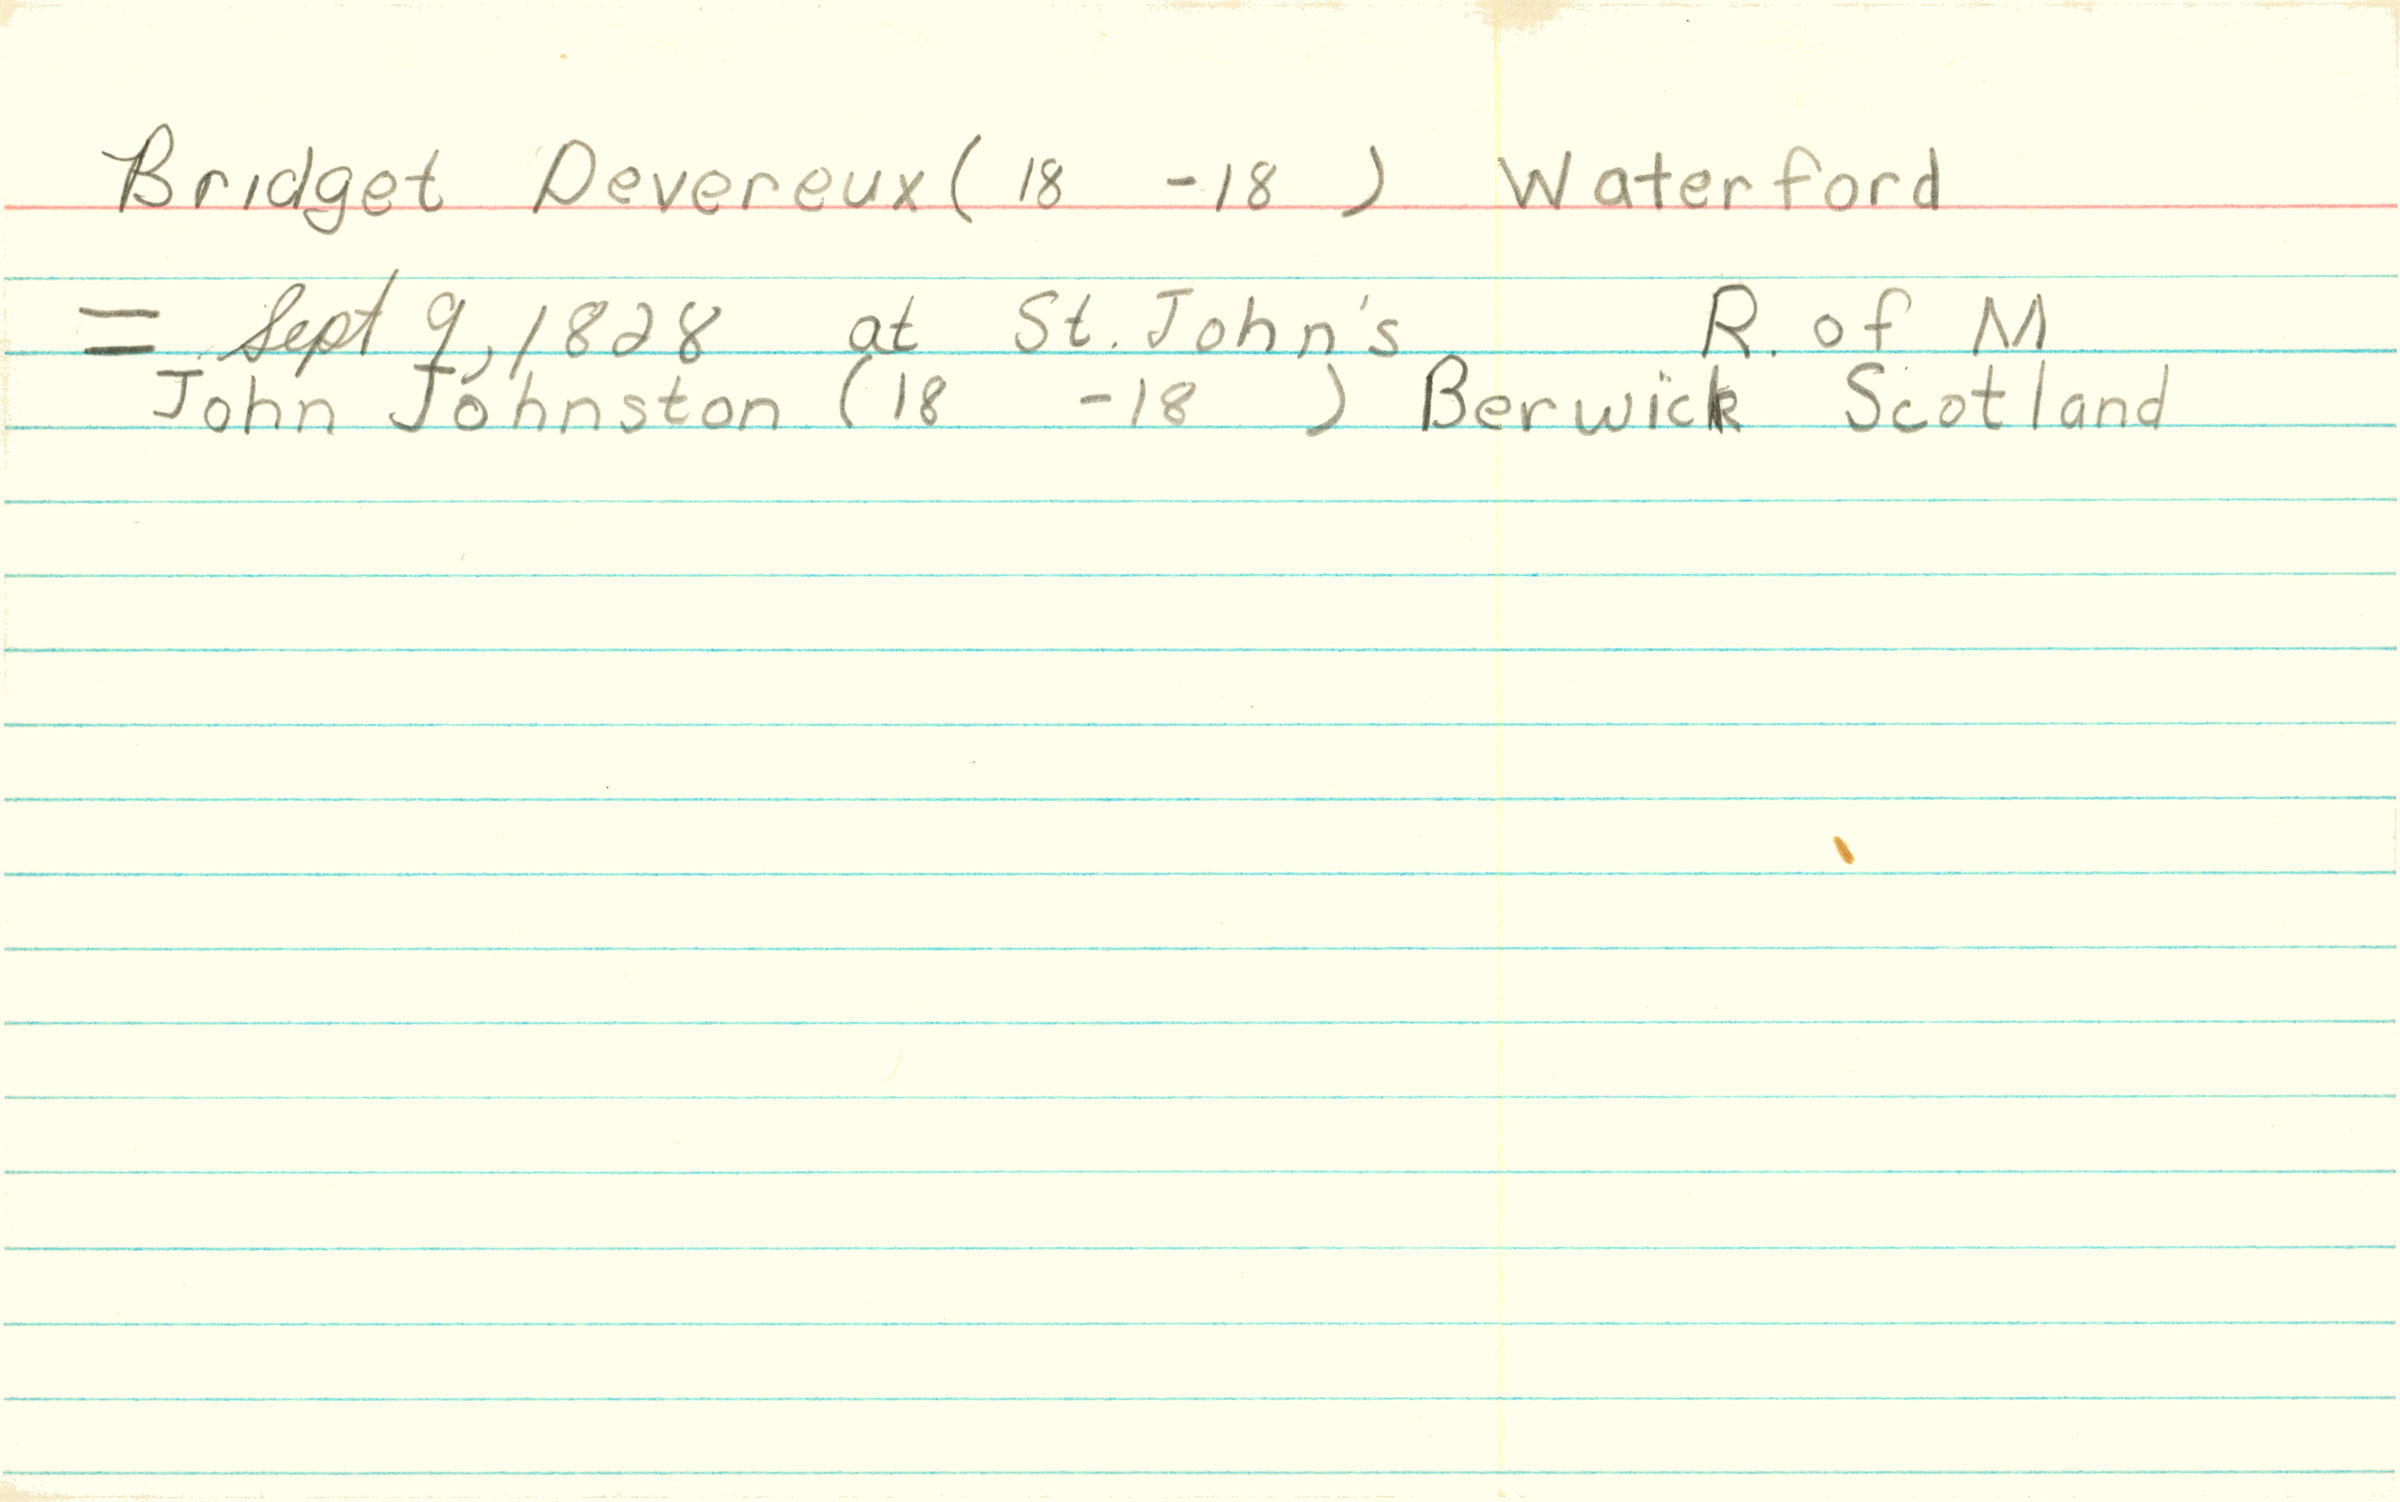 Bridget Devereux (18 -18 ) Waterford
= Sept 9, 1828 at St. John's R. of M
John Johnston (18 -18 ) Berwick Scotland